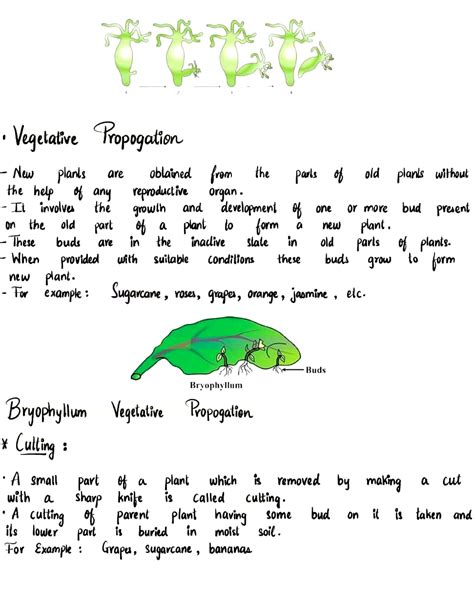 1 2 3 4
• Vegetative Propogation
- New plants are obtained from the parts of old plants without
the help of any reproductive organ.
- It involves the growth and development of one or more bud present
on the old part of a plant to form a new plant.
- These buds are in the inactive state in old parts of plants.
- When provided with suitable conditions these buds grow to form
new plant.
- For example : Sugarcane, roses, grapes, orange, jasmine, etc.
Buds
Bryophyllum
Bryophyllum Vegetative Propogation
* Cutting :
• A small part of a plant which is removed by making a cut
with a sharp knife is called cutting.
• A cutting of parent plant having some bud on it is taken and
its lower part is buried in moist soil.
For Example : Grapes, sugarcane, bananas